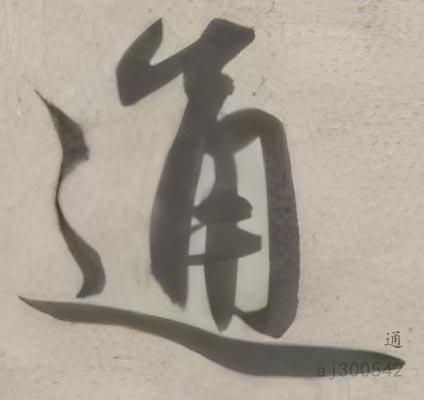 通
通
aj300542